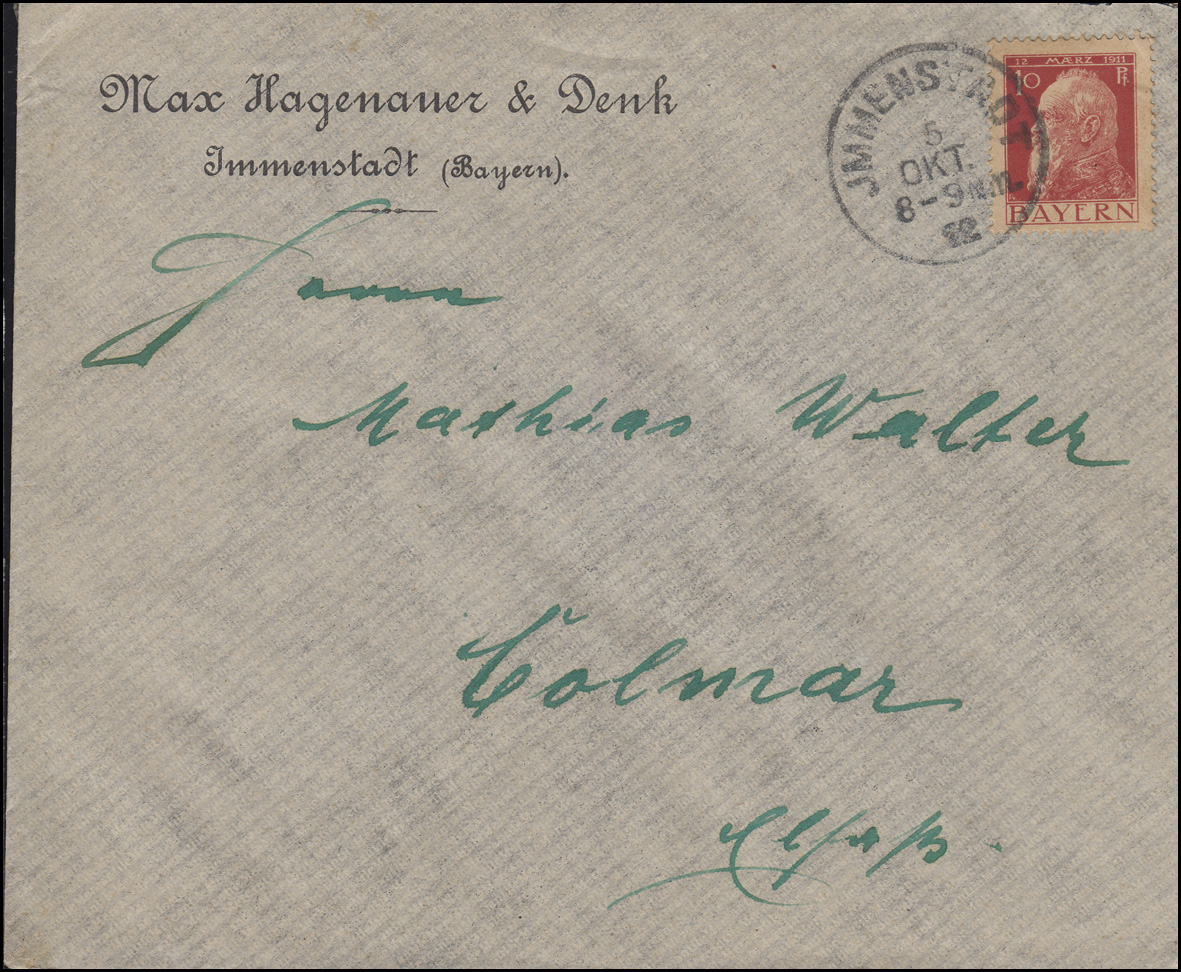 Max Hagenauer & Denk
Immenstadt (Bayern).
12 MÆRZ 1911
10 Pf.
BAYERN
JMMENSTADT
5
OKT.
8-9 N.M.
12
Herrn
Mathias Walter
Colmar
Elsaß.